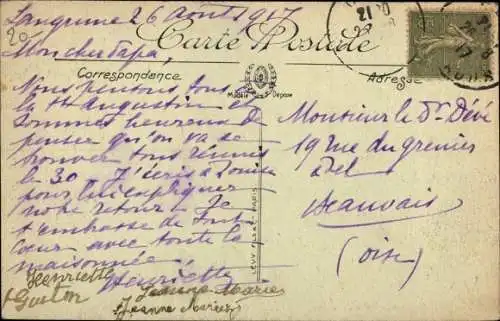 Langrune 26 août 1917
20
Mon cher Papa,
Carte Postale
Correspondance
Modèle Déposé
Adresse
Nous pensons tous à
la St Augustin et
sommes heureux de
penser qu'on va se
trouver tous réunis
le 30 - J'écris à Louise
pour lui expliquer
notre retour - Je
t'embrasse de tout
cœur avec toute la
maisonnée,
Henriette
Henriette
Gaston
Jeanne Marie
Jeanne Marie
Monsieur le Dr Devé
19 rue du grenier
à sel
Beauvais
(Oise)